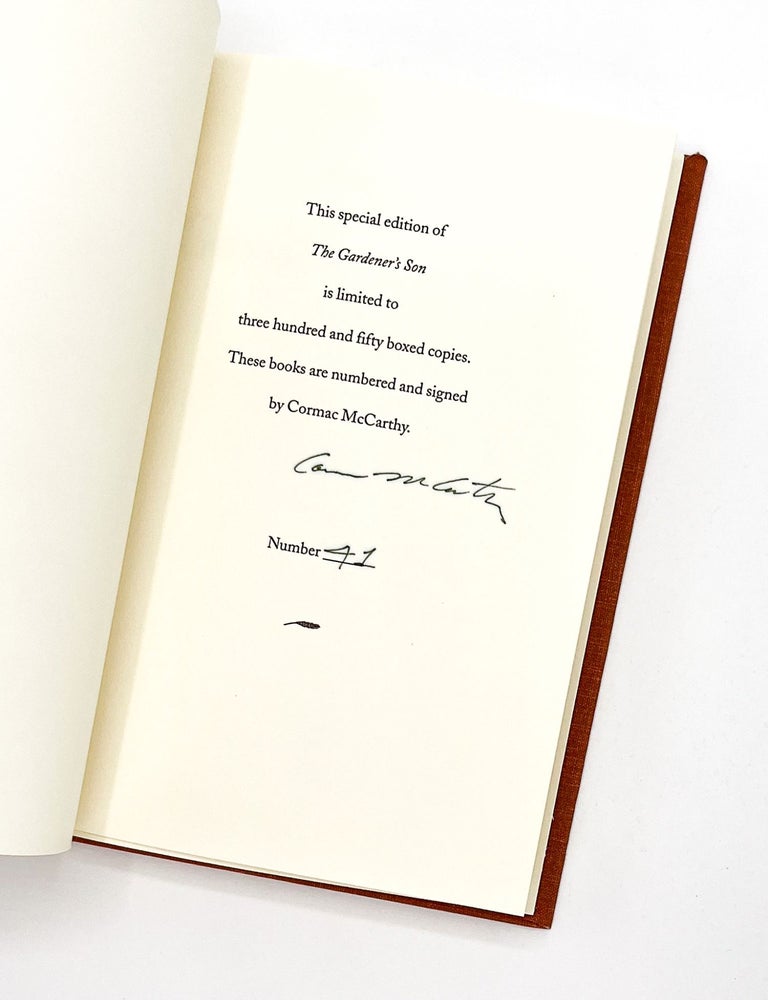 This special edition of
The Gardener's Son
is limited to
three hundred and fifty boxed copies.
These books are numbered and signed
by Cormac McCarthy.
Cormac McCarthy
Number 41